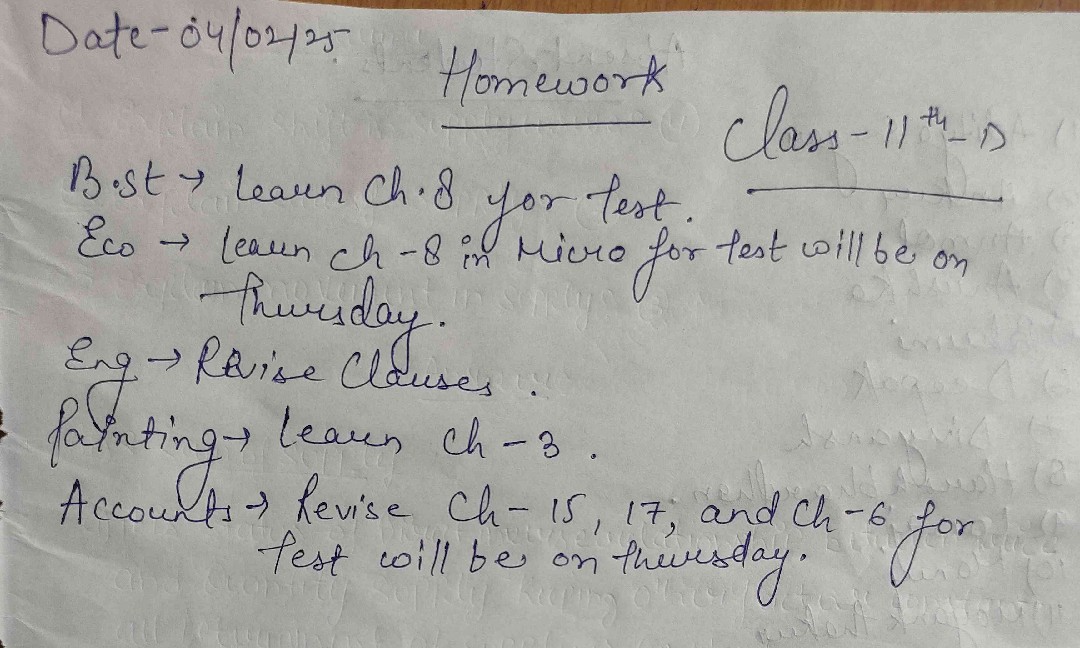 Date-04/02/25
Homework
Class-11th-D
B.st → learn Ch.8 for test.
Eco → learn ch-8 in Micro for test will be on
Thursday.
Eng → Revise Clauses.
Painting → learn ch-3.
Accounts → Revise Ch-15, 17, and Ch-6 for
test will be on thursday.